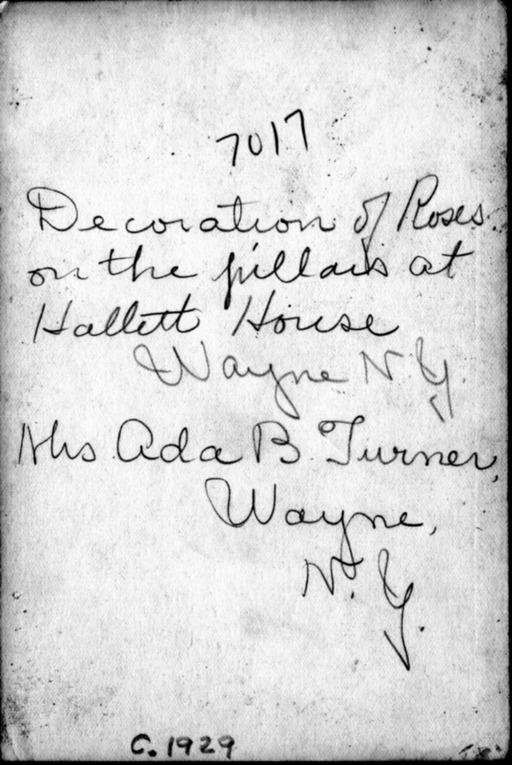 7017
Decoration of Roses
on the pillars at
Hallett House
Wayne N.Y.
Mrs Ada B. Turner,
Wayne,
N.Y.
C. 1929